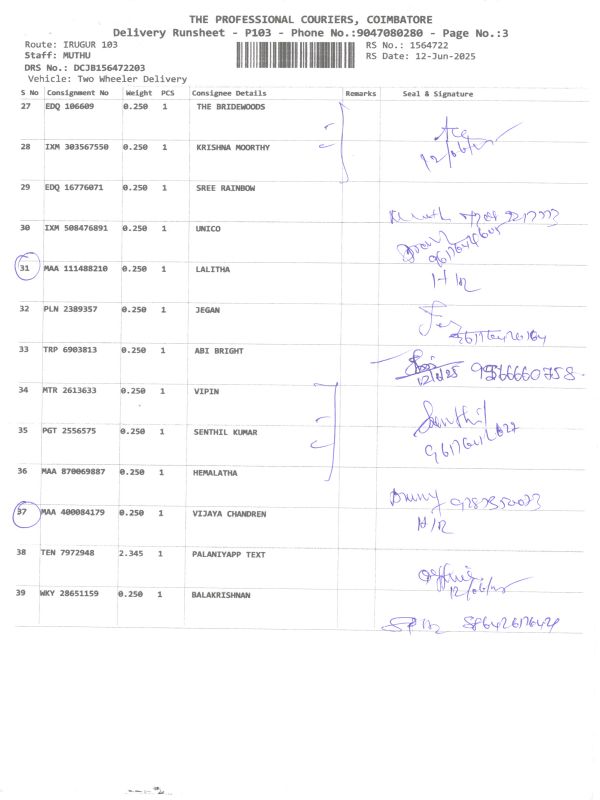 THE PROFESSIONAL COURIERS, COIMBATORE
Delivery Runsheet - P103 - Phone No.:9047080280 - Page No.:3
Route: IRUGUR 103 RS No.: 1564722
Staff: MUTHU RS Date: 12-Jun-2025
DRS No.: DCJB156472203
Vehicle: Two Wheeler Delivery
S No Consignment No Weight PCS Consignee Details Remarks Seal & Signature
27 EDQ 106609 0.250 1 THE BRIDEWOODS
28 IXM 303567550 0.250 1 KRISHNA MOORTHY
12/06/25
29 EDQ 16776071 0.250 1 SREE RAINBOW
30 IXM 508476891 0.250 1 UNICO
31 MAA 111488210 0.250 1 LALITHA
32 PLN 2389357 0.250 1 JEGAN
33 TRP 6903813 0.250 1 ABI BRIGHT
12/6/25
34 MTR 2613633 0.250 1 VIPIN
35 PGT 2556575 0.250 1 SENTHIL KUMAR
Senthil
36 MAA 870069887 0.250 1 HEMALATHA
37 MAA 400084179 0.250 1 VIJAYA CHANDREN
38 TEN 7972948 2.345 1 PALANIYAPP TEXT
12/06/25
39 WKY 28651159 0.250 1 BALAKRISHNAN